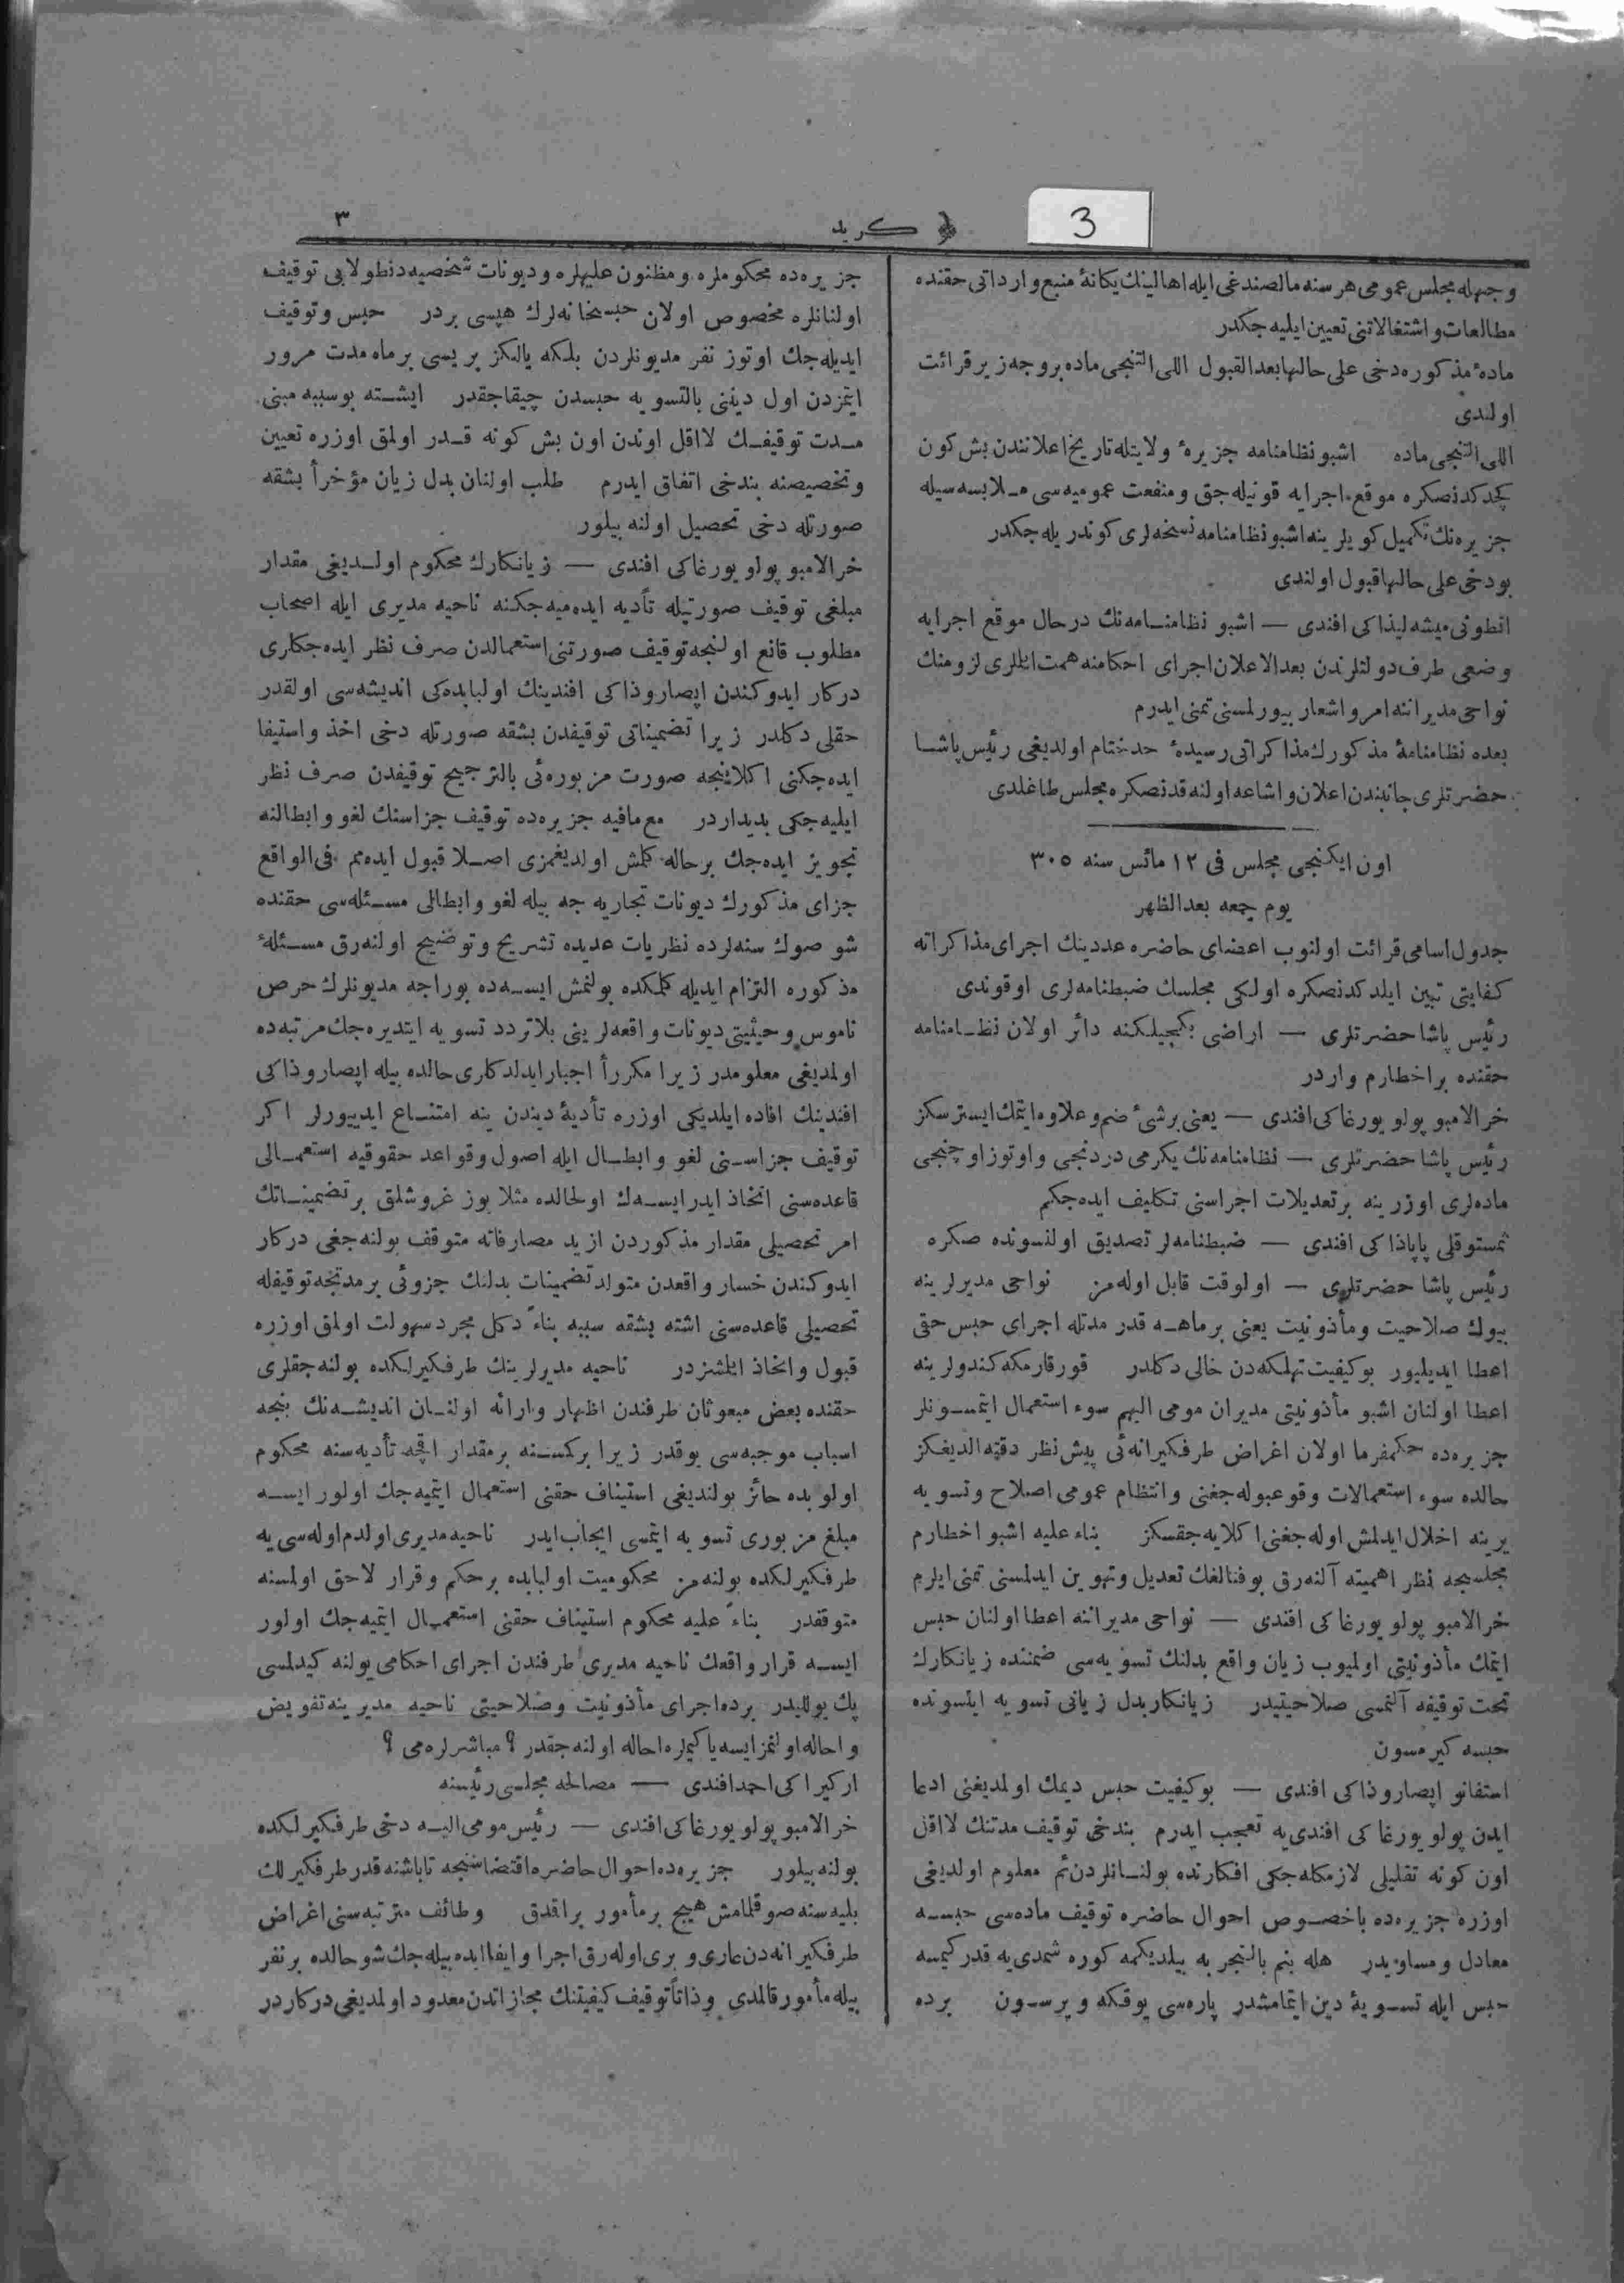 3
كريد
٣
وجهله مجلس عمومی هر سنه مال صندغی ایله اهالینك یكانهٔ منبع وارداتی حقنده
مطالعات و اشتغالاتنی تعیین ایلیه جكدر
مادهٔ مذكوره دخی علی حالها بعد القبول اللی التنجی ماده بروجه زیر قرائت
اولندی
اللی التنجی ماده اشبو نظامنامه جزیرهٔ ولایتله تاریخ اعلانندن بش كون
كچدكدنصكره موقع اجرایه قونیله جق و منفعت عمومیه سی ملابسه سیله
جزیره نك تكمیل كویلرینه اشبو نظامنامه نسخه لری كوندریله جكدر
بودخی علی حالها قبول اولندی
انطونی میشه لیذاكی افندی — اشبو نظامنامه نك درحال موقع اجرایه
وضعی طرف دولتلرندن بعد الاعلان اجرای احكامنه همت ایللری لزومنك
نواحی مدیرانه امر و اشعار بیورلمسنی تمنی ایدرم
بعده نظامنامهٔ مذكورك مذاكراتی رسیدهٔ حد ختام اولدیغی رئیس پاشا
حضرتلری جانبندن اعلان و اشاعه اولنه قدنصكره مجلس طاغلدی
اون ایكنجی مجلس فی ١٢ مائس سنه ٣٠٥
یوم جمعه بعد الظهر
جدول اسامی قرائت اولنوب اعضای حاضره عددینك اجرای مذاكراته
كفایتی تبین ایلدكدنصكره اولكی مجلسك ضبطنامه لری اوقوندی
رئیس پاشا حضرتلری — اراضی بكجیلكنه دائر اولان نظامنامه
حقنده بر اخطارم واردر
خرالامبو پولو یورغاكی افندی — یعنی برشیٔ ضم و علاوه ایتمك ایسترسكز
رئیس پاشا حضرتلری — نظامنامه نك یكرمی دردنجی و اوتوز اوچنجی
ماده لری اوزرینه بر تعدیلات اجراسنی تكلیف ایده جكم
ثمستوقلی پاپاذاكی افندی — ضبطنامه لر تصدیق اولنسونده صكره
رئیس پاشا حضرتلری — اولوقت قابل اوله مز نواحی مدیرلرینه
بیوك صلاحیت و مأذونیت یعنی بر ماهه قدر مدتله اجرای حبس حقی
اعطا ایدیلیور بو كیفیت تهلكه دن خالی دكلدر قورقارمكه كندولرینه
اعطا اولنان اشبو مأذونیتی مدیران مومی الیهم سوء استعمال ایتمسونلر
جزیره ده حكمفرما اولان اغراض طرفكیرانه ئی پیش نظر دقته الدیغكز
حالده سوء استعمالات وقوعبوله جغنی و انتظام عمومی اصلاح و تسویه
یرینه اخلال ایدلمش اوله جغنی اكلایه جقسكز بناء علیه اشبو اخطارم
مجلسجه نظر اهمیته آلنه رق بوفنالغك تعدیل و تهوین ایدلمسنی تمنی ایلرم
خرالامبو پولو یورغاكی افندی — نواحی مدیرانه اعطا اولنان حبس
ایتمك مأذونیتی اولمیوب زیان واقع بدلنك تسویه سی ضمننده زیانكارك
تحت توقیفه آلنمسی صلاحیتیدر زیانكار بدل زیانی تسویه ایتسونده
حبسه كیرمسون
استفانو اپصاروذاكی افندی — بو كیفیت حبس دیمك اولمدیغنی ادعا
ایدن پولو یورغاكی افندی یه تعجب ایدرم بندخی توقیف مدتنك لااقل
اون كونه تقلیلی لازمكله جكی افكارنده بولنانلردنم معلوم اولدیغی
اوزره جزیره ده باخصوص احوال حاضره توقیف ماده سی حبسه
معادل و مساویدر هله بنم بالتجربه بیلدیكمه كوره شمدی یه قدر كیمسه
حبس ایله تسویهٔ دین ایتمامشدر پاره سی یوقكه ویرسون برده
جزیره ده محكوملره و مظنون علیهلره و دیونات شخصیه دنطولایی توقیف
اولنانلره مخصوص اولان حبسخانه لرك هپسی بردر حبس و توقیف
ایدیله جك اوتوز نفر مدیونلردن بلكه یالكز بریسی بر ماه مدت مرور
ایتمزدن اول دیننی بالتسویه حبسدن چیقاجقدر ایشته بو سببه مبنی
مدت توقیفك لااقل اوندن اون بش كونه قدر اولمق اوزره تعیین
و تخصیصنه بندخی اتفاق ایدرم طلب اولنان بدل زیان مؤخراً بشقه
صورتله دخی تحصیل اولنه بیلور
خرالامبو پولو یورغاكی افندی — زیانكارك محكوم اولدیغی مقدار
مبلغی توقیف صورتیله تأدیه ایده میه جكنه ناحیه مدیری ایله اصحاب
مطلوب قانع اولنجه توقیف صورتنی استعمالدن صرف نظر ایده جكاری
دركار ایدوكندن اپصاروذاكی افندینك اولبابده كی اندیشه سی اولقدر
حقلی دكلدر زیرا تضمیناتی توقیفدن بشقه صورتله دخی اخذ و استیفا
ایده جكنی اكلاینجه صورت مزبوره ئی بالترجیح توقیفدن صرف نظر
ایلیه جكی بدیداردر مع مافیه جزیره ده توقیف جزاسنك لغو و ابطالنه
تجویز ایده جك بر حاله كلمش اولدیغمزی اصلا قبول ایده مم فی الواقع
جزای مذكورك دیونات تجاریه جه بیله لغو و ابطالی مسئله سی حقنده
شو صوك سنه لرده نظریات عدیده تشریح و توضیح اولنه رق مسئلهٔ
مذكوره التزام ایدیله كلمكده بولنمش ایسه ده بوراجه مدیونلرك حرص
ناموس و حیثیتی دیونات واقعه لرینی بلا تردد تسویه ایتدیره جك مرتبه ده
اولمدیغی معلومدر زیرا مكرراً اجبار ایدلدكاری حالده بیله اپصاروذاكی
افندینك افاده ایلدیكی اوزره تأدیهٔ دیندن ینه امتناع ایدییورلر اكر
توقیف جزاسنی لغو و ابطال ایله اصول و قواعد حقوقیه استعمالی
قاعده سنی اتخاذ ایدر ایسه ك اولحالده مثلا یوز غروشلق بر تضمیناتك
امر تحصیلی مقدار مذكوردن ازید مصارفاته متوقف بولنه جغی دركار
ایدوكندن خسار واقعدن متولد تضمینات بدلنك جزوئی بر مدتجه توقیفله
تحصیلی قاعده سنی اشته بشقه سببه بناءً دكل مجرد سهولت اولمق اوزره
قبول و اتخاذ ایتمشزدر ناحیه مدیرلرینك طرفكیرلكده بولنه جقلری
حقنده بعض مبعوثان طرفندن اظهار و ارائه اولنان اندیشه نك بنجه
اسباب موجبه سی یوقدر زیرا بر كمسنه بر مقدار اقچه تأدیه سنه محكوم
اولوبده حائز بولندیغی استیناف حقنی استعمال ایتمیه جك اولور ایسه
مبلغ مزبوری تسویه ایتمسی ایجاب ایدر ناحیه مدیری اولدم اوله سی یه
طرفكیرلكده بولنه مز محكومیت اولبابده بر حكم و قرار لاحق اولمسنه
متوقفدر بناءً علیه محكوم استیناف حقنی استعمال ایتمیه جك اولور
ایسه قرار واقعك ناحیه مدیری طرفندن اجرای احكامی یولنه كیدلمسی
پك یوللیدر برده اجرای مأذونیت و صلاحیتی ناحیه مدیرینه تفویض
و احاله اولنمز ایسه یا كیملره احاله اولنه جقدر ؟ مباشرلره می ؟
اركیراكی احمد افندی — مصالحه مجلسی رئیسنه
خرالامبو پولو یورغاكی افندی — رئیس مومی الیه دخی طرفكیرلكده
بولنه بیلور جزیره ده احوال حاضره اقتضاسنجه تا باشنه قدر طرفكیرلك
بلیه سنه صوقلمامش هیچ بر مأمور براقدق وظائف مترتبه سنی اغراض
طرفكیرانه دن عاری و بری اوله رق اجرا و ایفا ایده بیله جك شو حالده بر نفر
بیله مأمور قالمدی و ذاتاً توقیف كیفیتنك مجازاتدن معدود اولمدیغی دركاردر